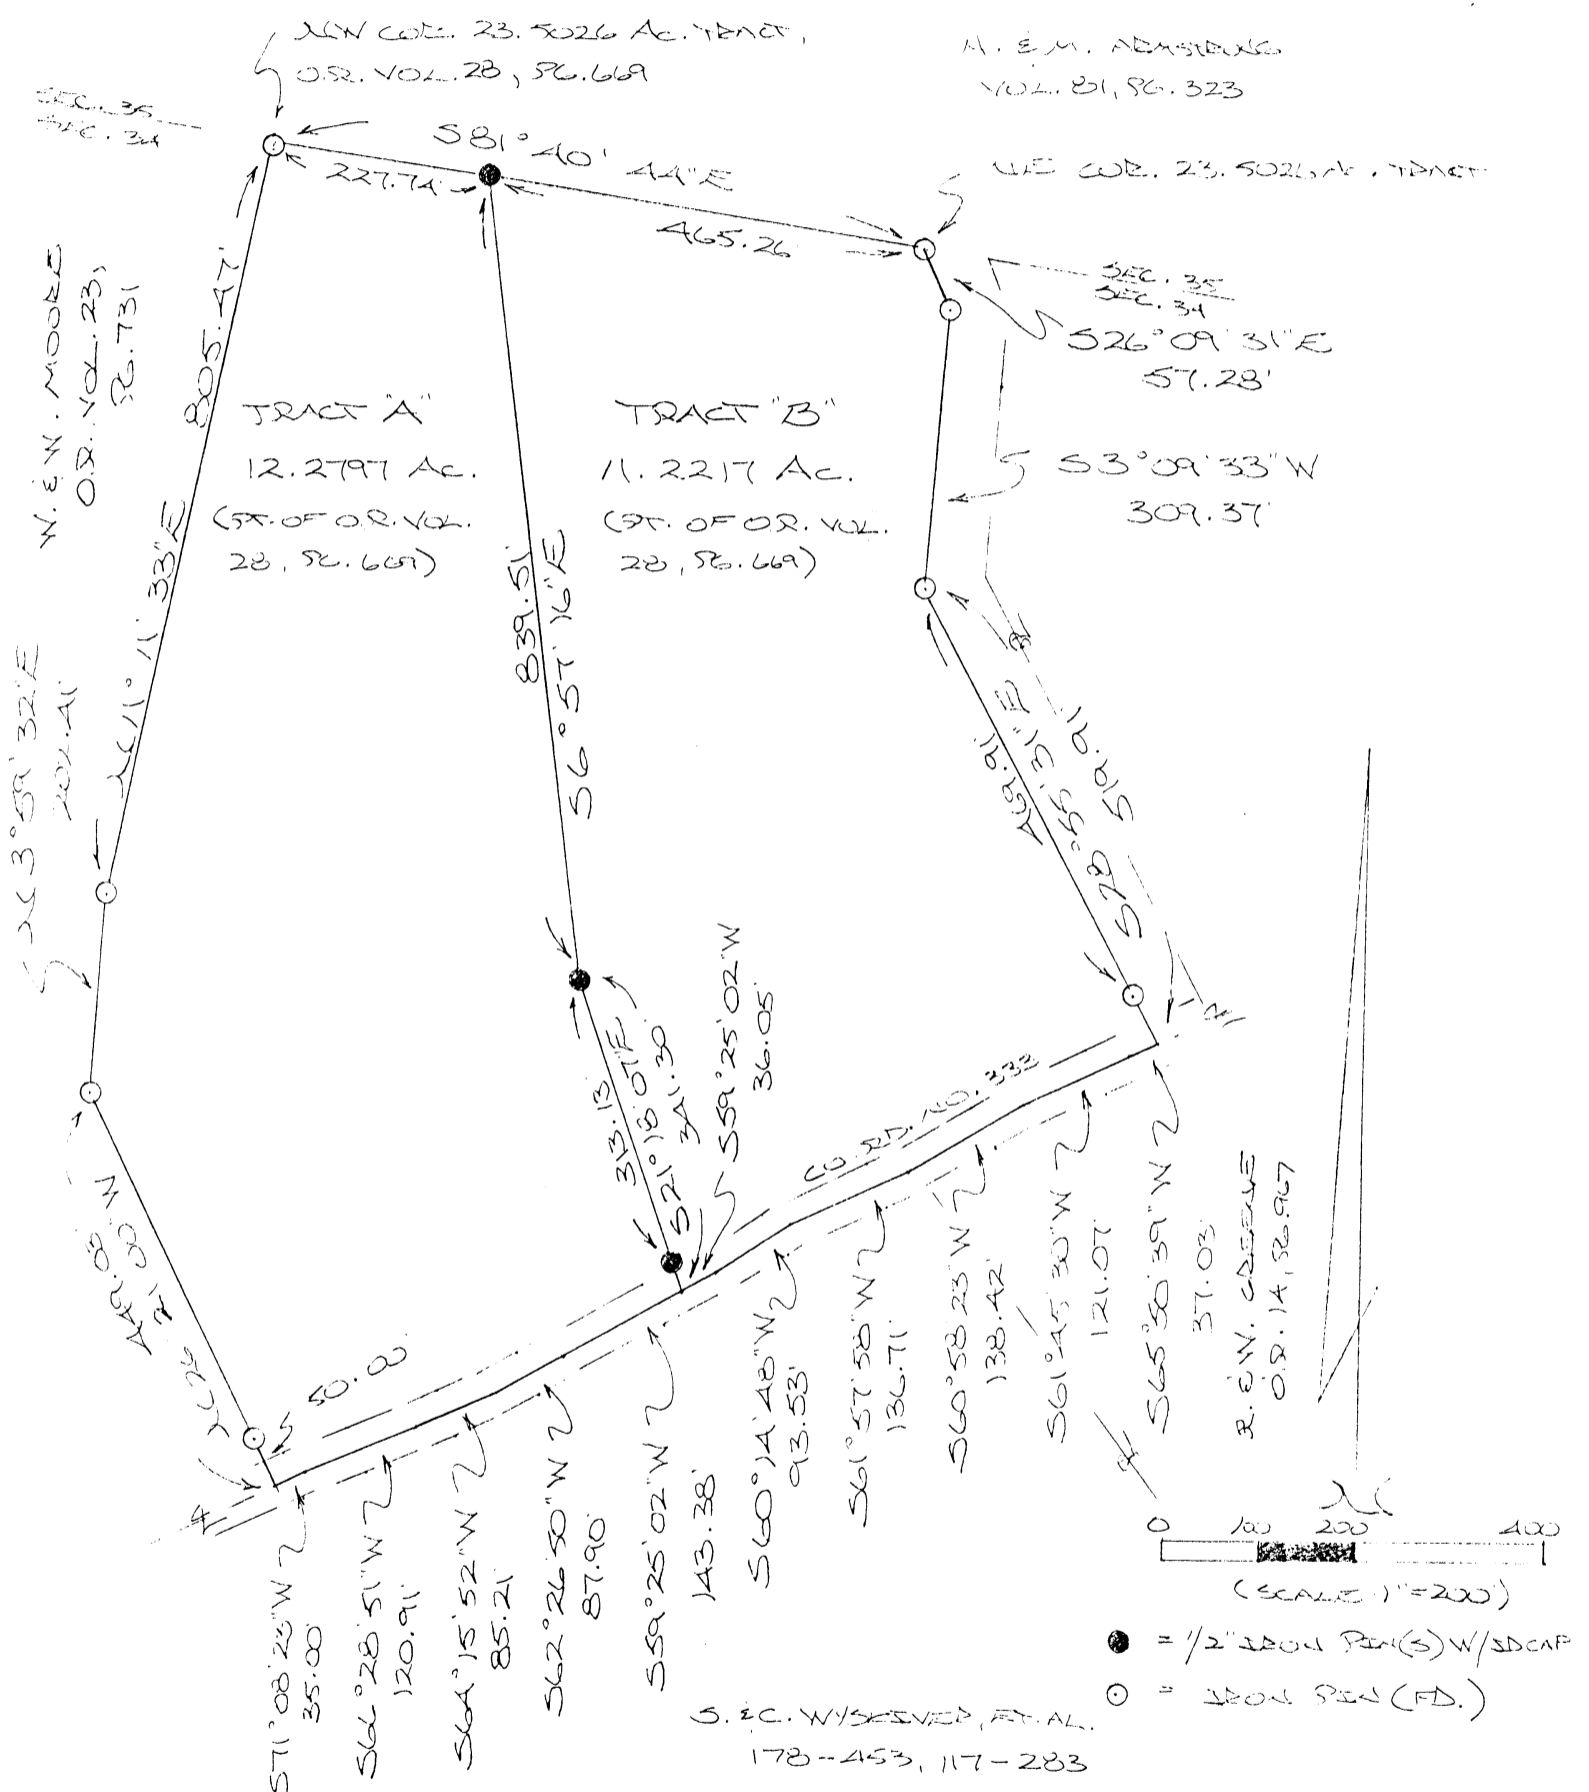 NW COR. 23.5026 AC. TRACT,
O.R. VOL. 28, PG. 669
N. & M. ARMSTRONG
VOL. 81, PG. 323
SEC. 35
SEC. 34
S81°40'44"E
227.74'
465.26'
NE COR. 23.5026 AC. TRACT
SEC. 35
SEC. 34
S26°09'31"E
57.28'
W. & W. MOORE
O.R. VOL. 23,
PG. 731
805.47'
N11°11'33"E
TRACT "A"
12.2797 AC.
(PT. OF O.R. VOL.
28, PG. 669)
TRACT "B"
11.2217 AC.
(PT. OF O.R. VOL.
28, PG. 669)
S3°09'33"W
309.37'
839.51'
S6°57'16"E
N3°59'32"E
202.41'
469.91'
S28°55'31"E
519.91'
313.13'
S21°18'07"E
341.30'
S59°25'02"W
36.05'
CO. RD. NO. 333
449.05'
N26 21'00"W
50.00'
S71°08'23"W
35.00'
S66°28'51"W
120.91'
S64°15'52"W
85.21'
S62°26'50"W
87.90'
S59°25'02"W
143.38'
S60°14'48"W
93.53'
S61°57'58"W
136.71'
S60°58'23"W
138.42'
S61°45'30"W
121.07'
S65°50'39"W
37.03'
R. & W. GREENE
O.R. 14, PG. 967
N
0 100 200 400
(SCALE 1"=200')
= 1/2" IRON PIN(S) W/IDCAP
= IRON PIN (FD.)
S. & C. ET. AL.
178-453, 117-283